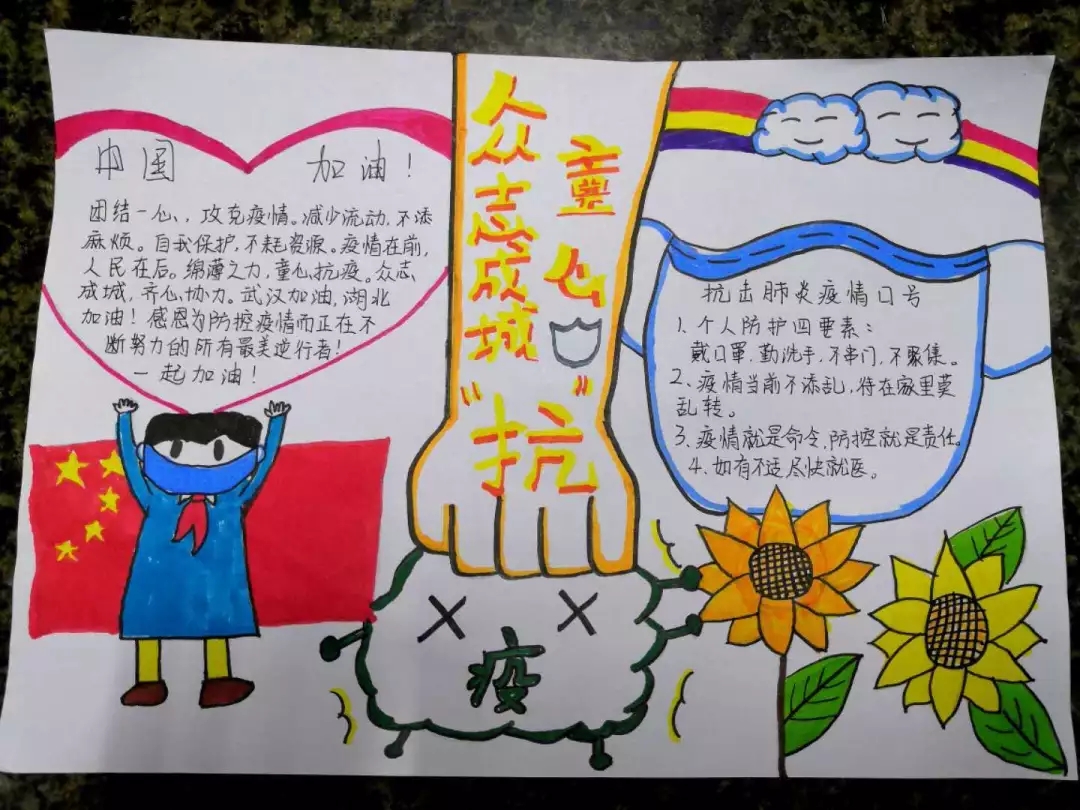 中国 加油！
团结一心，攻克疫情。减少流动，不添
麻烦。自我保护，不耗资源。疫情在前，
人民在后。绵薄之力，童心抗疫。众志
成城，齐心协力。武汉加油，湖北
加油！感恩为防控疫情而正在不
断努力的所有最美逆行者！
一起加油！
众志成城
童心
“抗”
疫
抗击肺炎疫情口号
1、个人防护四要素：
戴口罩，勤洗手，不串门，不聚集。
2、疫情当前不添乱，待在家里莫
乱转。
3、疫情就是命令，防控就是责任。
4、如有不适尽快就医。